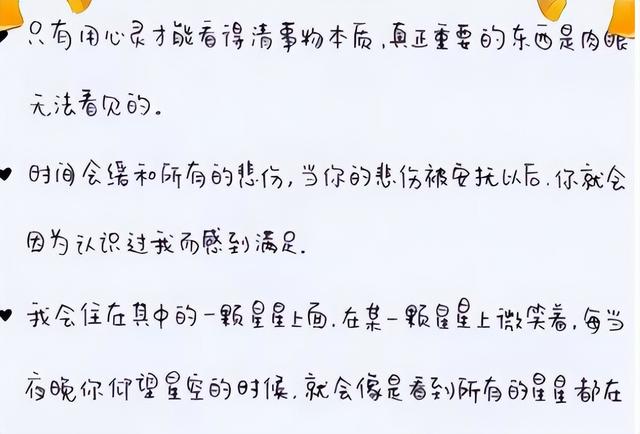 只有用心灵才能看得清事物本质,真正重要的东西是肉眼
无法看见的。
时间会缓和所有的悲伤,当你的悲伤被安抚以后.你就会
因为认识过我而感到满足.
我会住在其中的一颗星星上面.在某一颗星星上微笑着,每当
夜晚你仰望星空的时候.就会像是看到所有的星星都在